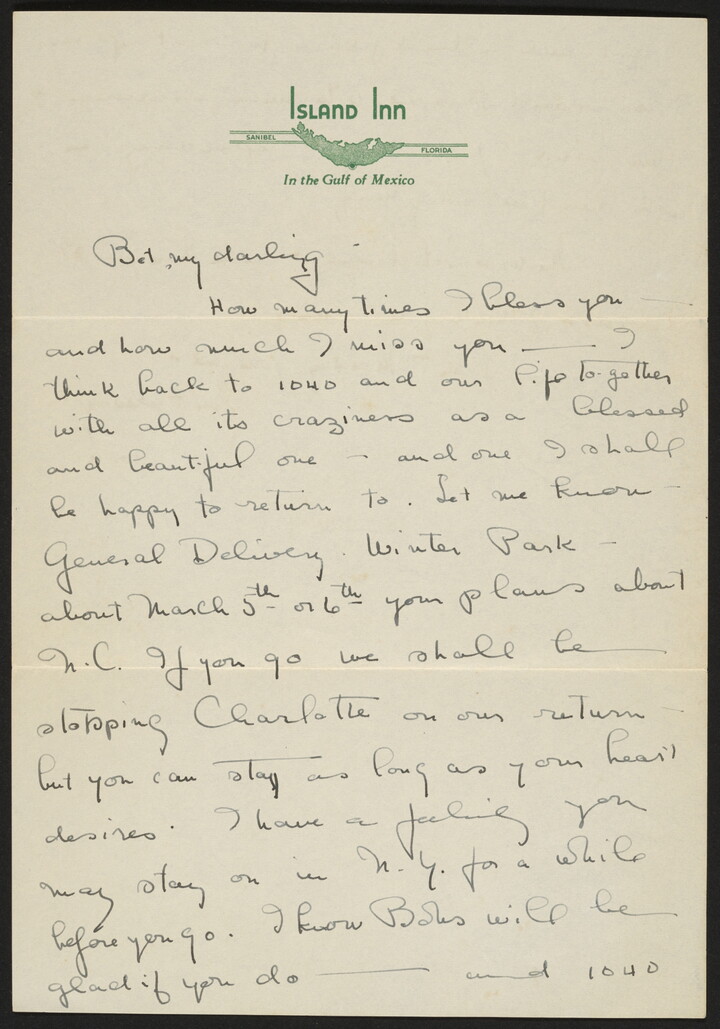 ISLAND INN
SANIBEL
FLORIDA
In the Gulf of Mexico
Bet, my darling -
How many times I bless you —
and how much I miss you — I
think back to 1040 and our life together
with all its craziness as a blessed
and beautiful one - and one I shall
be happy to return to. Let me know -
General Delivery. Winter Park -
about March 5th or 6th your plans about
N.C. If you go we shall be
stopping Charlotte on our return -
but you can stay as long as your heart
desires. I have a feeling you
may stay on in N.Y. for a while
before you go. I know will be
glad if you do — and 1040